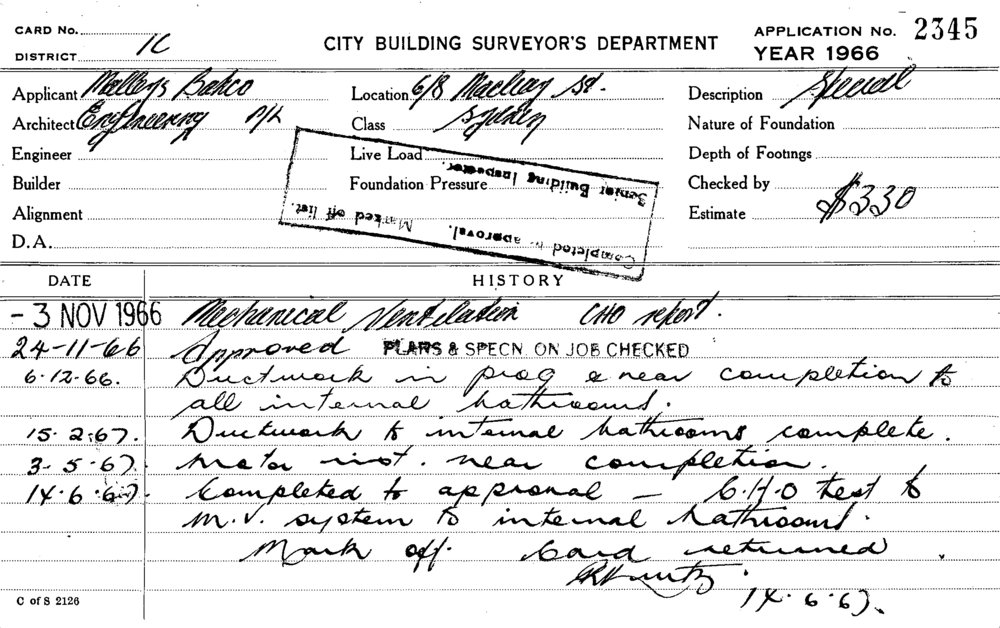 CARD No.
DISTRICT 1C
CITY BUILDING SURVEYOR'S DEPARTMENT
APPLICATION No. 2345
YEAR 1966
Applicant Malleys Bahco
Location 6/8 Macleay St.
Description Special
Architect Engineering P/L
Class Sydney
Nature of Foundation
Engineer
Live Load
Depth of Footings
Builder
Foundation Pressure
Checked by
Alignment
Estimate $330
D.A.
Completed to approval. Marked off list.
Senior Building Inspector.
DATE
HISTORY
- 3 NOV 1966 Mechanical Ventilation CHO report.
24-11-66 Approved PLANS & SPECN. ON JOB CHECKED
6.12.66. Ductwork in prog & near completion to
all internal bathrooms.
15.2.67. Ductwork to internal bathrooms complete.
3.5.67. Motor inst. near completion.
14.6.67. Completed to approval — C.H.O test to
M.V. system to internal bathrooms.
Mark off. Card returned.
14.6.67.
C of S 2126